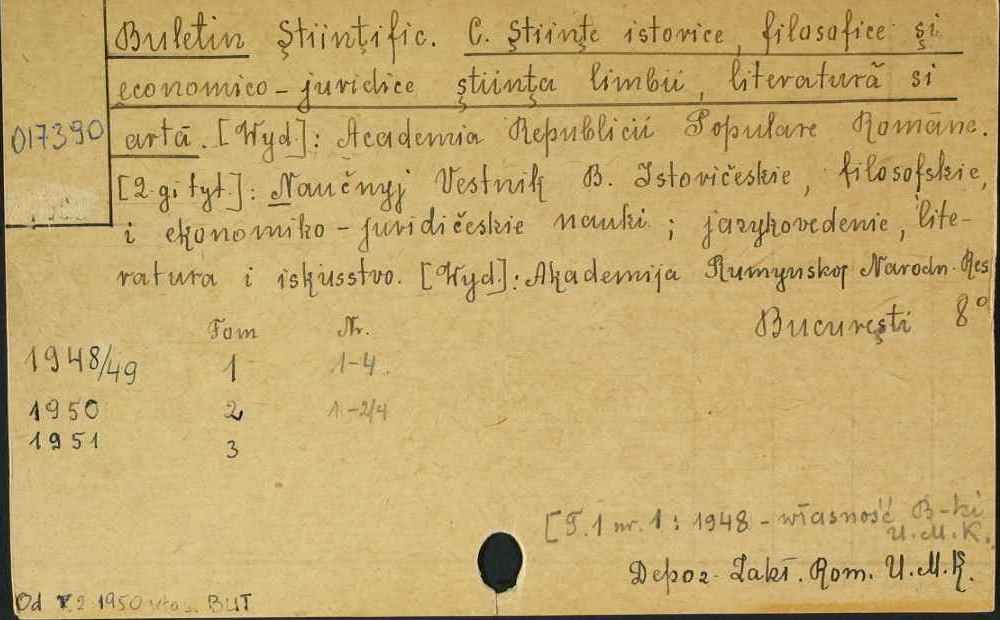 Buletin Ştiinţific. C. Ştiinţe istorice, filosofice şi
economico-juridice ştiinţa limbii, literatură si
017390
artă. [Wyd]: Academia Republicii Populare Române.
[2-gi tyt.]: Naučnyj Vestnik B. Istoričeskie, filosofskie,
i ekonomiko-juridičeskie nauki; jazykovedenie, lite-
ratura i iskusstvo. [Wyd.]: Akademija Rumynskoj Narodn. Res
Bucureşti 8°
Tom Nr.
1948/49 1 1-4.
1950 2 1-2/4
1951 3
[T.1 nr. 1: 1948 - własność B-ki
U.M.K.
Depoz. Zakł. Rom. U.M.K.
Od T.2 1950 włas. BUT